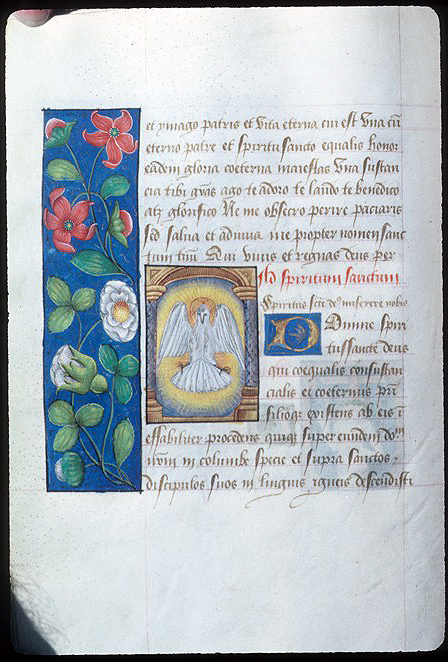 et ymago patris et vita eterna cui est vna cū
eterno patre et spiritu sancto equalis honor
eadem gloria coeterna maiestas vna sustan
cia tibi gr̄as ago te adoro te laudo te benedico
atq̄ glorifico Ne me obsecro perire paciaris
sed salua et adiuua me propter nomen sanc
tum tuū Qui viuis et regnas deus per
Ad spiritum sanctum
Spiritus sc̄te deꝰ miserere nobis
Domine spiri
tussancte deus
qui coequalis consustan
cialis et coeternus prī
filioq̨ existens ab eis ī
effabiliter procedens quiq̨ super eundem dom̄
nrm̄ in columbe specie et supra sanctos
discipulos suos in linguis igneis descendisti